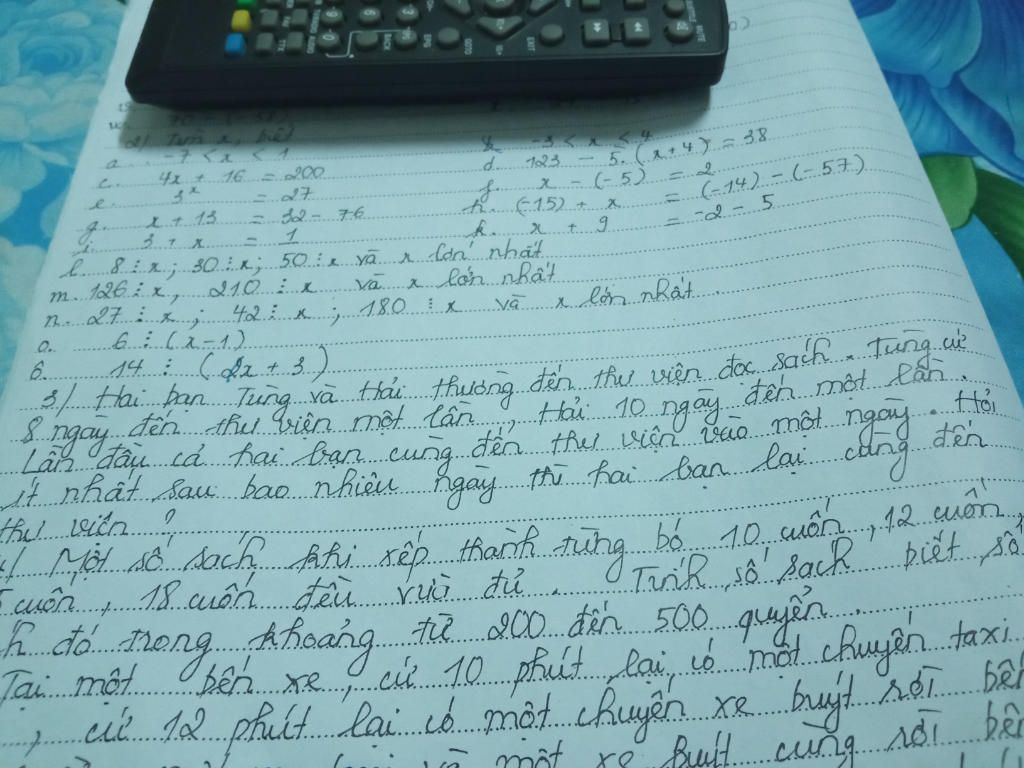 70 - (-38)
2/ Tìm x, biết
a. -7 < x < 1 b. -3 < x ≤ 4
c. 4x + 16 = 200 d. 123 - 5.(x+4) = 38
e. 3ˣ = 27 f. x - (-5) = 2
g. x + 13 = 32 - 76 h. (-15) + x = (-14) - (-57)
i. 3 + x = 1 k. x + 9 = -2 - 5
l. 8 ⋮ x; 30 ⋮ x; 50 ⋮ x và x lớn nhất
m. 126 ⋮ x, 210 ⋮ x và x lớn nhất
n. 27 ⋮ x; 42 ⋮ x; 180 ⋮ x và x lớn nhất.
o. 6 ⋮ (x-1)
ô. 14 ⋮ (2x + 3)
3/ Hai bạn Tùng và Hải thường đến thư viện đọc sách. Tùng cứ
8 ngày đến thư viện một lần, Hải 10 ngày đến một lần.
Lần đầu cả hai bạn cùng đến thư viện vào một ngày. Hỏi
ít nhất sau bao nhiêu ngày thì hai bạn lại cùng đến
thư viện ?
4/ Một số sách khi xếp thành từng bó 10 cuốn, 12 cuốn,
cuốn, 18 cuốn đều vừa đủ. Tính số sách biết số
h đó trong khoảng từ 200 đến 500 quyển.
Tại một bến xe, cứ 10 phút lại có một chuyến taxi
, cứ 12 phút lại có một chuyến xe buýt rời bến
và một xe buýt cùng rời bến